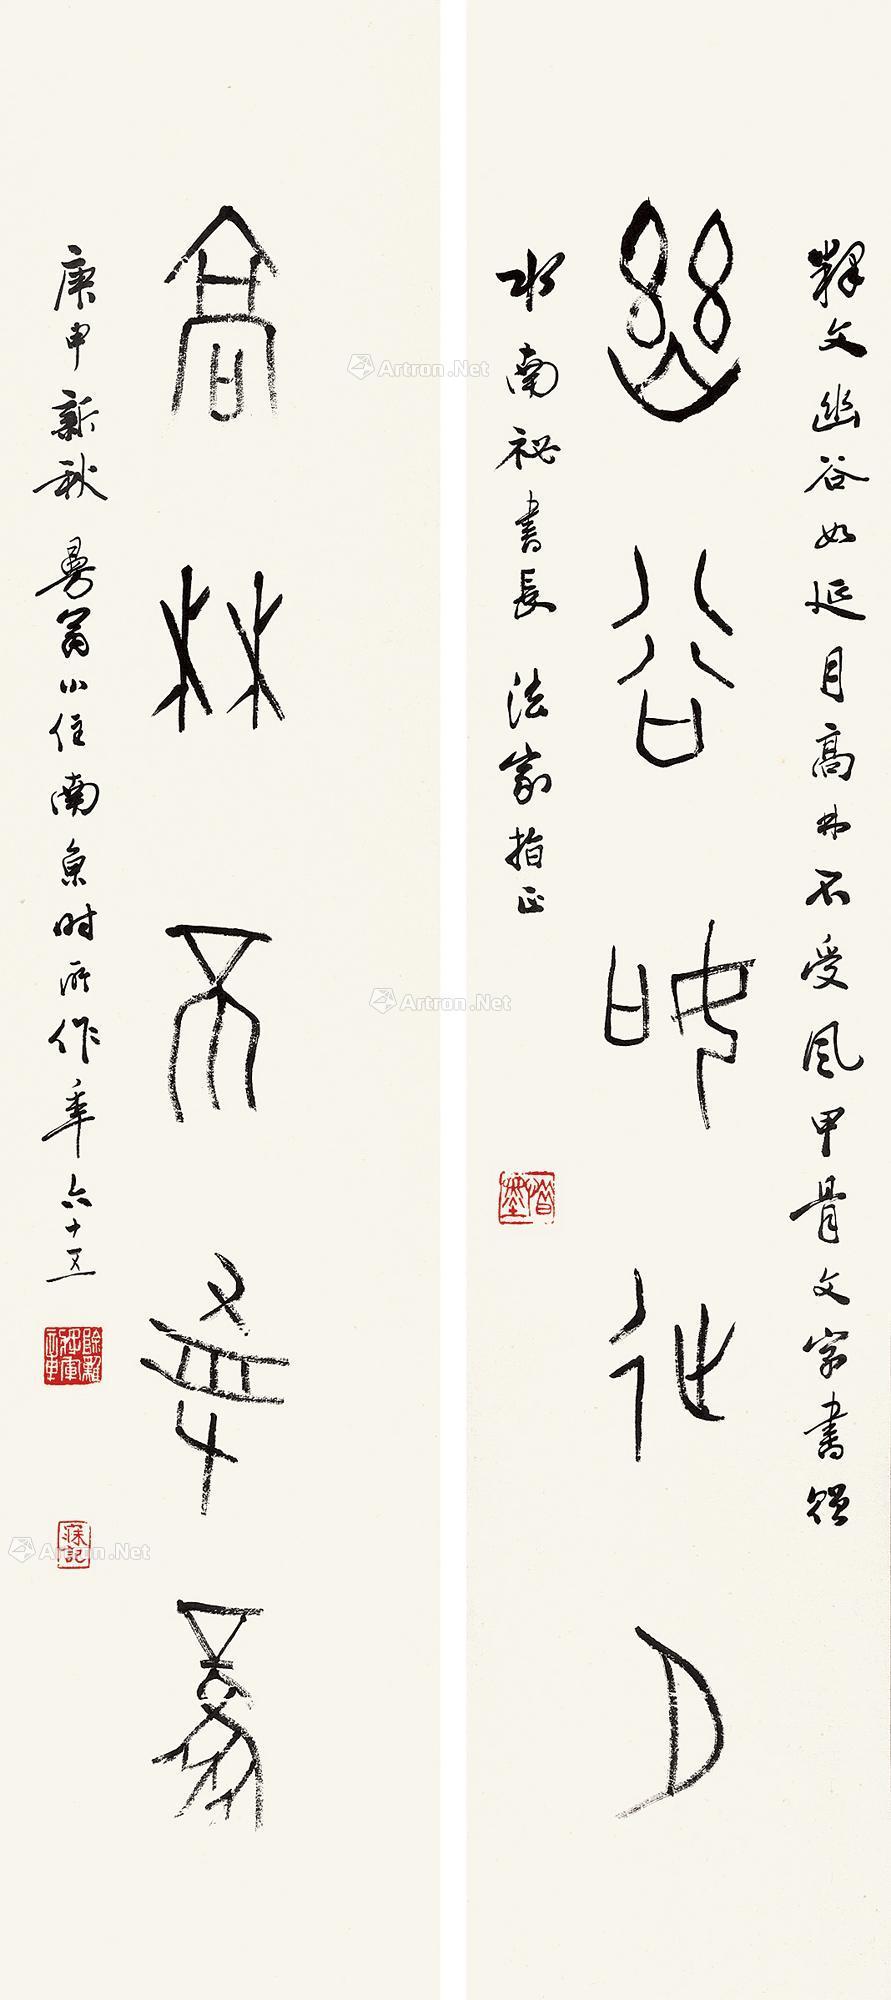 释文幽谷如延月高林不受风甲骨文字书体
幽谷如延月
水南祕書長法家指正
高林不受風
庚申新秋曼翁小住南京时所作年六十五
Artron.Net
Artron.Net
Artron.Net